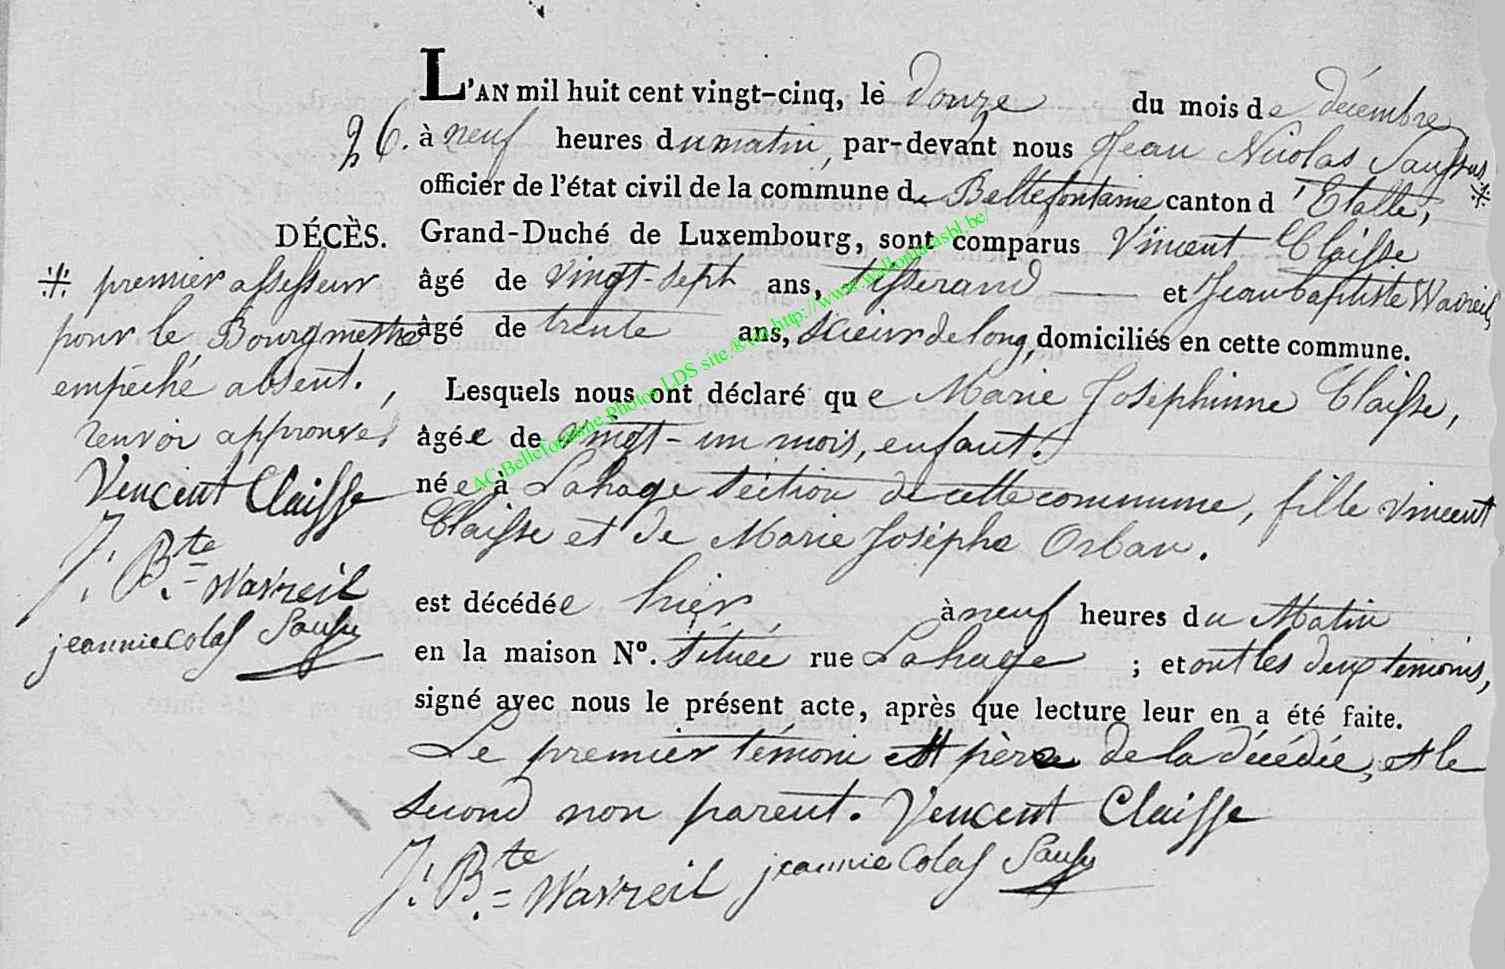 L'AN mil huit cent vingt-cinq, le douze du mois de décembre
26. à neuf heures du matin, par-devant nous Jean Nicolas
officier de l'état civil de la commune de Bellefontaine canton d'Etalle, *
DÉCÈS. Grand-Duché de Luxembourg, sont comparus Vincent Claisse
âgé de vingt-sept ans, tisserand et Jean baptiste Wavreil,
âgé de trente ans, scieur de long, domiciliés en cette commune.
Lesquels nous ont déclaré que Marie Josephinne Claisse,
âgée de vingt-un mois, enfant.
née à Lahage section de cette commune, fille vincent
Claisse et de Marie Josephe Orban.
est décédée hier, à neuf heures du Matin
en la maison Nº. située rue Lahage ; et ont les deux temoins,
signé avec nous le présent acte, après que lecture leur en a été faite.
Le premier témoin est père de la décédée, et le
second non parent. Vencent Claisse
J: Bte Wavreil jeannicolas
* premier assesseur
pour le Bourgmestre
empêché absent.
renvoi approuvé
Vencent Claisse
J. Bte Wavreil
jeannicolas
AC Bellefontaine photos LDS site © http://www.walloniaasbl.be/